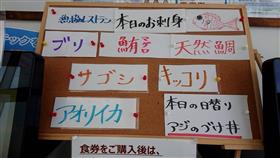 魚協レストラン 本日のお刺身
ブリ 鮪 天然鯛
サゴシ キッコリ
アオリイカ 本日の日替り
アジのづけ丼
食券をご購入後は、